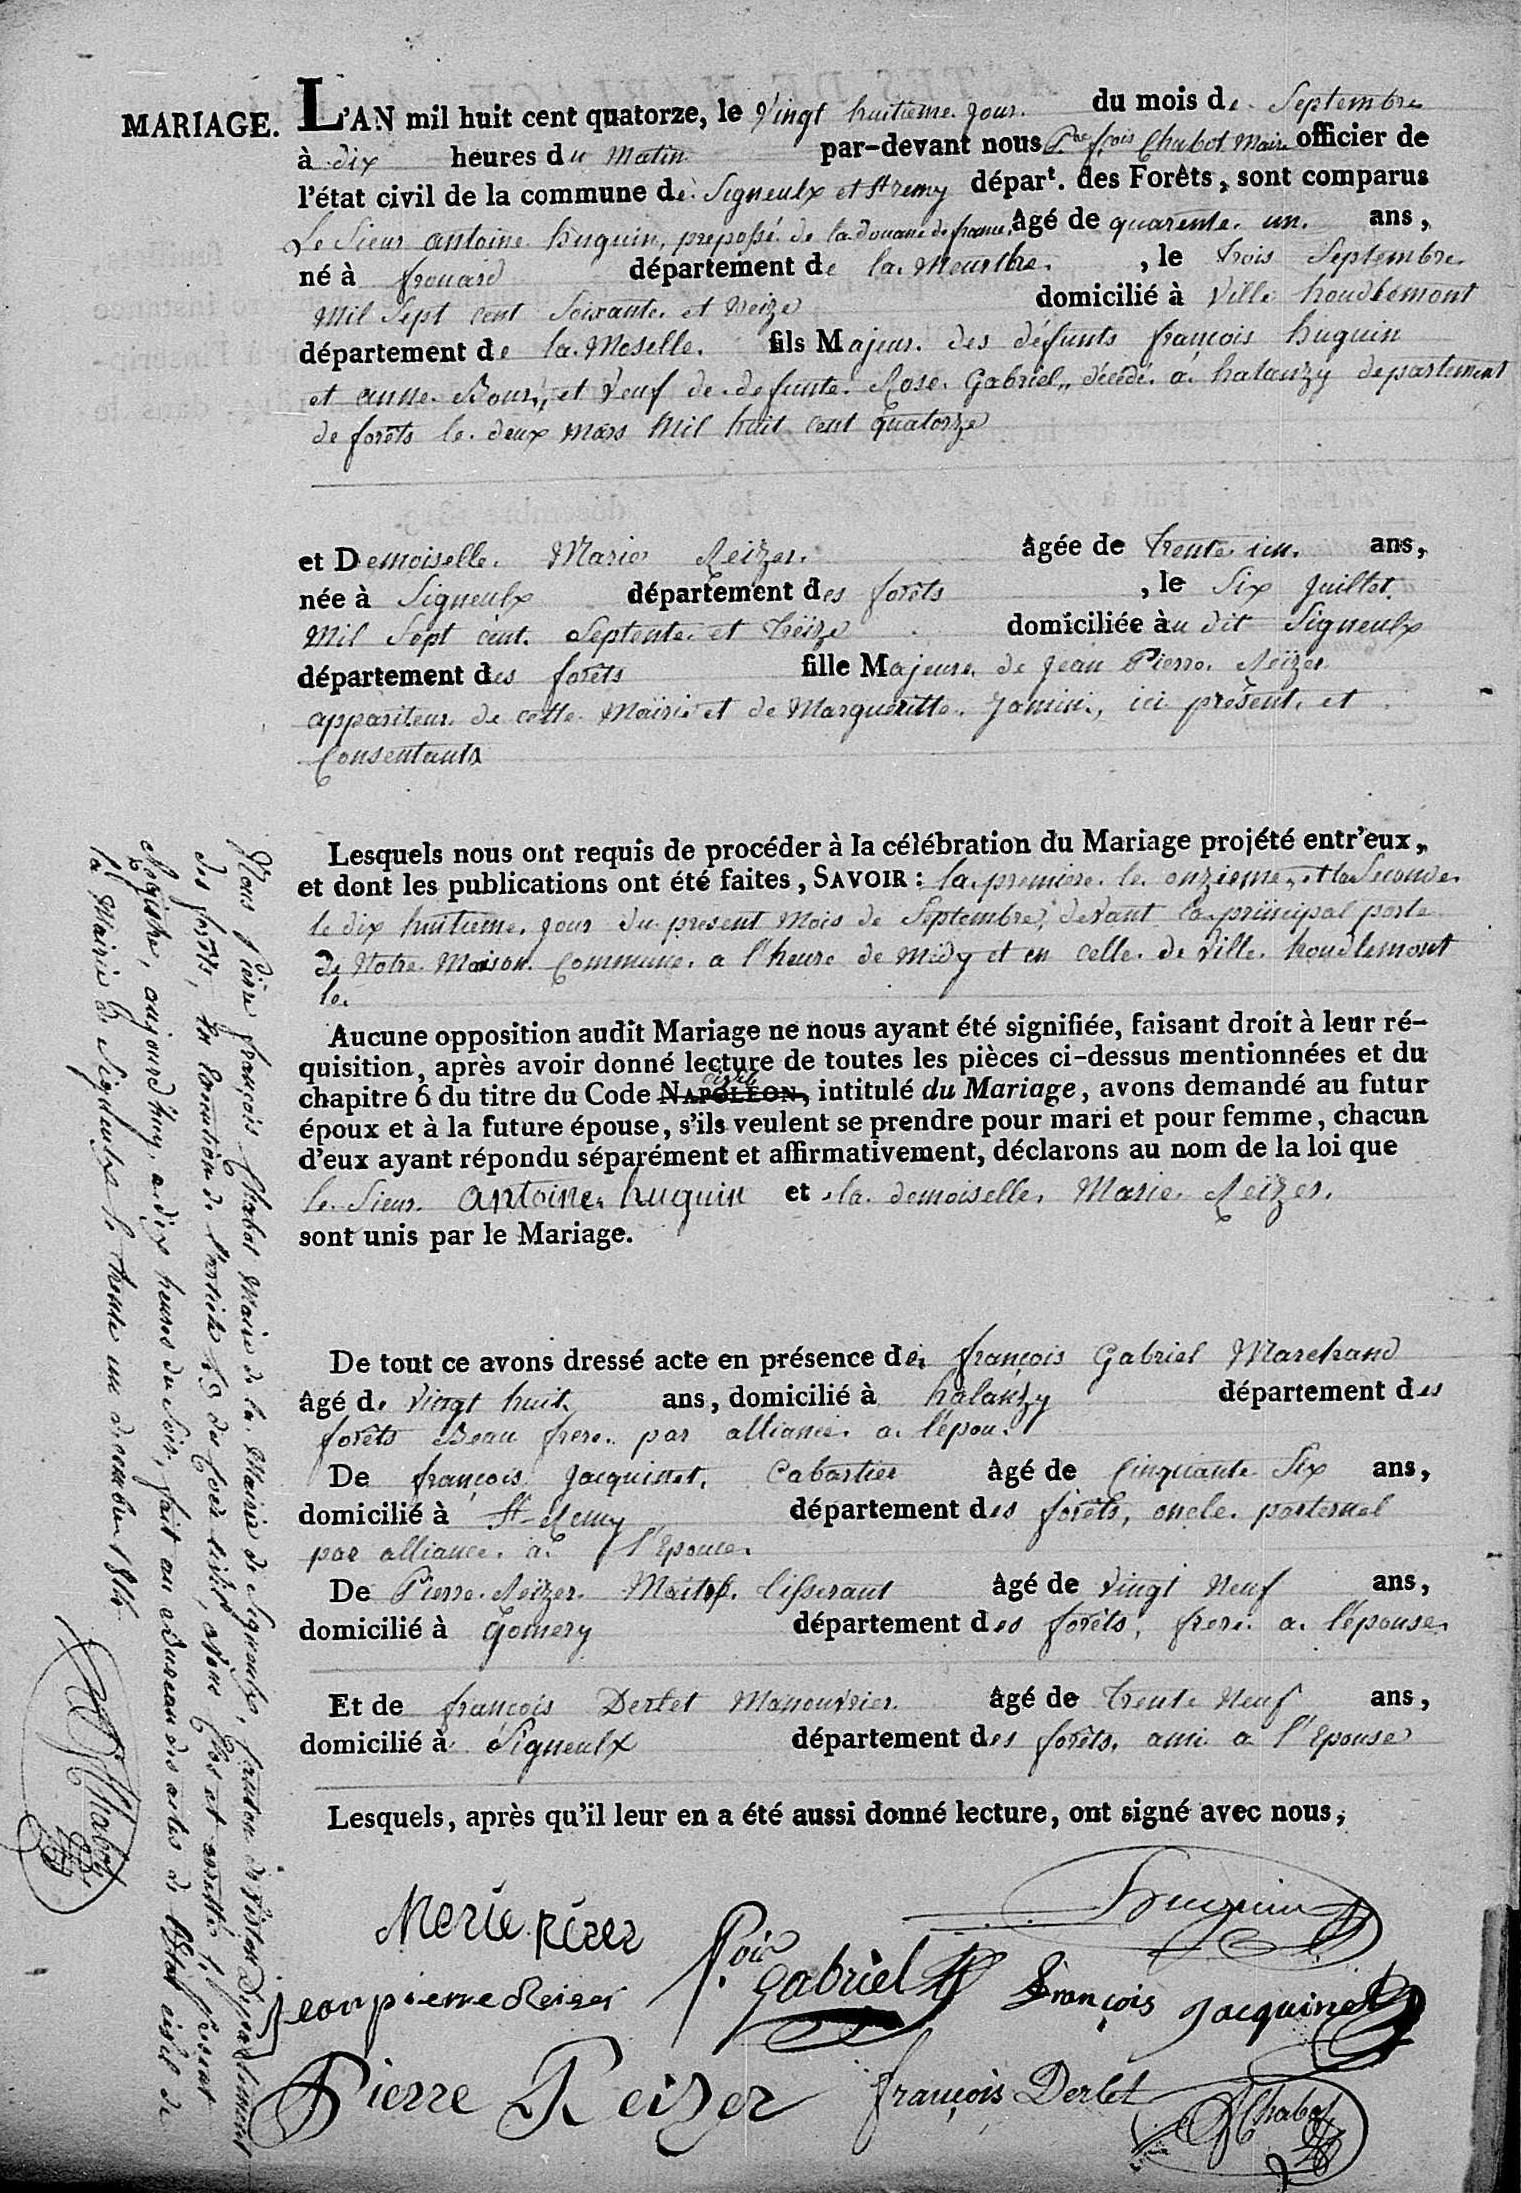 MARIAGE.
L'AN mil huit cent quatorze, le Vingt huitieme jour du mois de Septembre
à dix heures du Matin par-devant nous Pre frois Chabot Maire officier de
l'état civil de la commune de Signeulx et St remy départ. des Forêts, sont comparus
Le Sieur antoine huguin, preposé de la douane de france, âgé de quarente un ans,
né à frouard département de la Meurthe, le trois Septembre
Mil Sept cent Soixante et treize domicilié à Ville houdlemont
département de la Moselle. fils Majeur des défunts françois huguin
et anne Bour, et Veuf de defunte Rose Gabriel, décédé a halanzy departement
de forêts le deux Mars Mil huit cent quatorze
et Demoiselle Marie Reizer âgée de trente un ans,
née à Signeulx département des forêts, le Six Juillet
Mil Sept cent Septente et treize domiciliée au dit Signeulx
département des forêts fille Majeure de Jean Pierre Reizer
appariteur de cette Mairie et de Margueritte Jamin, ici présent et
Consentants
Lesquels nous ont requis de procéder à la célébration du Mariage projété entr'eux,
et dont les publications ont été faites, SAVOIR : la premiere le onzieme, et la Seconde
le dix huitieme jour du present Mois de Septembre, devant la principal porte
de Notre Maison Commune a l'heure de Midy et en celle de Ville houdlemont
le
Aucune opposition audit Mariage ne nous ayant été signifiée, faisant droit à leur ré-
quisition, après avoir donné lecture de toutes les pièces ci-dessus mentionnées et du
civil
chapitre 6 du titre du Code NAPOLÉON, intitulé du Mariage, avons demandé au futur
époux et à la future épouse, s'ils veulent se prendre pour mari et pour femme, chacun
d'eux ayant répondu séparément et affirmativement, déclarons au nom de la loi que
le Sieur antoine huguin et la demoiselle Marie Reizer
sont unis par le Mariage.
De tout ce avons dressé acte en présence de françois Gabriel Marchand
âgé de Vingt huit ans, domicilié à halanzy département des
forêts Beau frere par alliance a l'epou.
De françois Jacquinet, Cabartier âgé de Cinquante Six ans,
domicilié à St remy département des forêts, oncle parternel
par alliance a l'Epouce
De Pierre Reizer Maitre tisserant âgé de Vingt Neuf ans,
domicilié à Gomery département des forêts, frere a l'épouse
Et de françois Derlet Manouvrier âgé de trente Neuf ans,
domicilié à Signeulx département des forêts, ami a l'Epouse
Lesquels, après qu'il leur en a été aussi donné lecture, ont signé avec nous,
huguin
Merie Rézer
fois Gabriel
Jean pierre Reizer
François Jacquinet
Pierre Reizer
françois Derlet
Chabot
Nous Pierre François Chabot Maire de la Mairie de Signeulx, Canton de Virton Département
des forêts, En Execution de l'article 43 du Code civil, avons Clos et arretté le présent
Registre, aujourd'huy a dix heures du Soir, fait au Bureau des actes de l'Etat civil de
la Mairie de Signeulx le trente un decembre 1814
Chabot